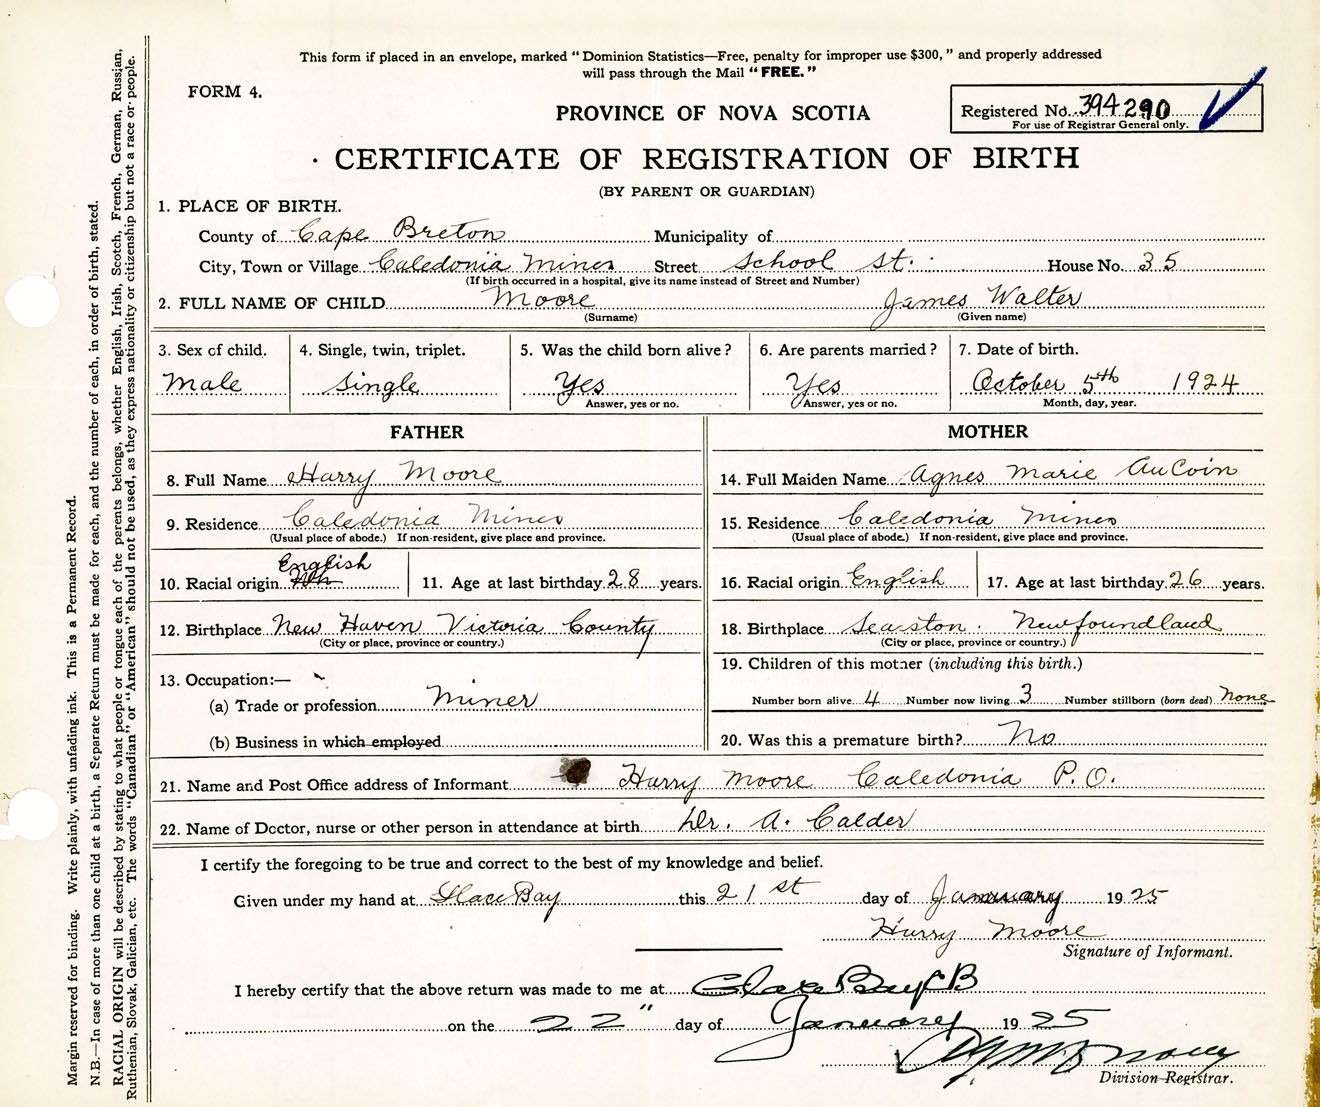 This form if placed in an envelope, marked "Dominion Statistics—Free, penalty for improper use $300," and properly addressed
will pass through the Mail "FREE."
FORM 4.
PROVINCE OF NOVA SCOTIA
Registered No. 394290
For use of Registrar General only.
CERTIFICATE OF REGISTRATION OF BIRTH
(BY PARENT OR GUARDIAN)
1. PLACE OF BIRTH.
County of Cape Breton Municipality of
City, Town or Village Caledonia Mines Street School St. House No. 35
(If birth occurred in a hospital, give its name instead of Street and Number)
2. FULL NAME OF CHILD Moore James Walter
(Surname) (Given name)
3. Sex of child. 4. Single, twin, triplet. 5. Was the child born alive? 6. Are parents married? 7. Date of birth.
Male Single Yes Yes October 5th 1924
Answer, yes or no. Answer, yes or no. Month, day, year.
FATHER MOTHER
8. Full Name Harry Moore 14. Full Maiden Name Agnes Marie AuCoin
9. Residence Caledonia Mines 15. Residence Caledonia Mines
(Usual place of abode.) If non-resident, give place and province. (Usual place of abode.) If non-resident, give place and province.
English
10. Racial origin 11. Age at last birthday 28 years. 16. Racial origin English 17. Age at last birthday 26 years.
12. Birthplace New Haven Victoria County 18. Birthplace Searston. Newfoundland
(City or place, province or country.) (City or place, province or country.)
19. Children of this mother (including this birth.)
13. Occupation:—
(a) Trade or profession Miner Number born alive 4 Number now living 3 Number stillborn (born dead) None
(b) Business in which employed 20. Was this a premature birth? No
21. Name and Post Office address of Informant Harry Moore Caledonia P.O.
22. Name of Doctor, nurse or other person in attendance at birth Dr. A. Calder
I certify the foregoing to be true and correct to the best of my knowledge and belief.
Given under my hand at Glace Bay this 21st day of January 1925
Harry Moore
Signature of Informant.
I hereby certify that the above return was made to me at Glace Bay CB
on the 22" day of January 1925
Division Registrar.
Margin reserved for binding. Write plainly, with unfading ink. This is a Permanent Record.
N.B.—In case of more than one child at a birth, a Separate Return must be made for each, and the number of each, in order of birth, stated.
RACIAL ORIGIN will be described by stating to what people or tongue each of the parents belongs, whether English, Irish, Scotch, French, German, Russian,
Ruthenian, Slovak, Galician, etc. The words "Canadian" or "American" should not be used, as they express nationality or citizenship but not a race or people.